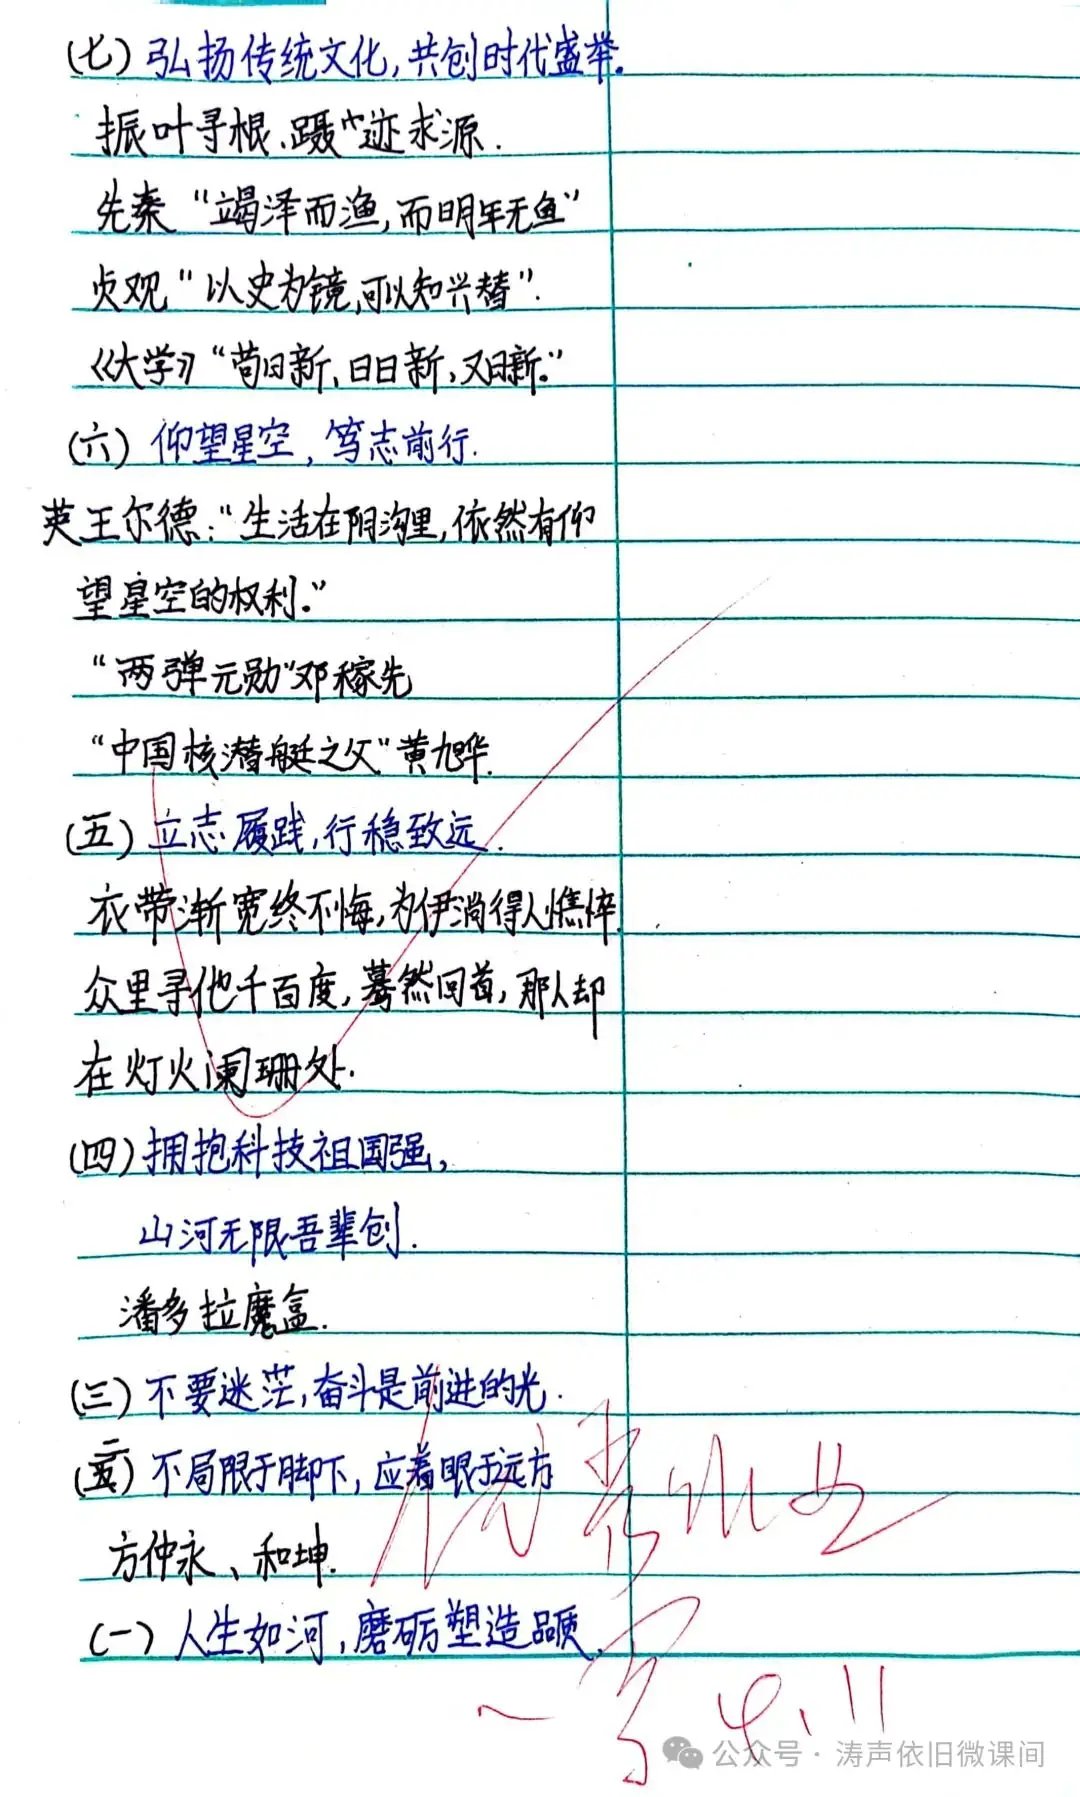 (七) 弘扬传统文化,共创时代盛举.
振叶寻根、蹑迹求源.
先秦“竭泽而渔,而明年无鱼”
贞观“以史为镜,可以知兴替”.
《大学》“苟日新、日日新,又日新.”
(六) 仰望星空,笃志前行.
英王尔德:“生活在阴沟里,依然有仰
望星空的权利.”
“两弹元勋”邓稼先
“中国核潜艇之父”黄旭华.
(五) 立志履践,行稳致远.
衣带渐宽终不悔,为伊消得人憔悴.
众里寻他千百度,蓦然回首,那人却
在灯火阑珊处.
(四) 拥抱科技祖国强,
山河无限吾辈创.
潘多拉魔盒.
(三) 不要迷茫,奋斗是前进的光.
(二) 不局限于脚下,应着眼于远方
方仲永、和珅.
(一) 人生如河,磨砺塑造品质.
公众号·涛声依旧微课间